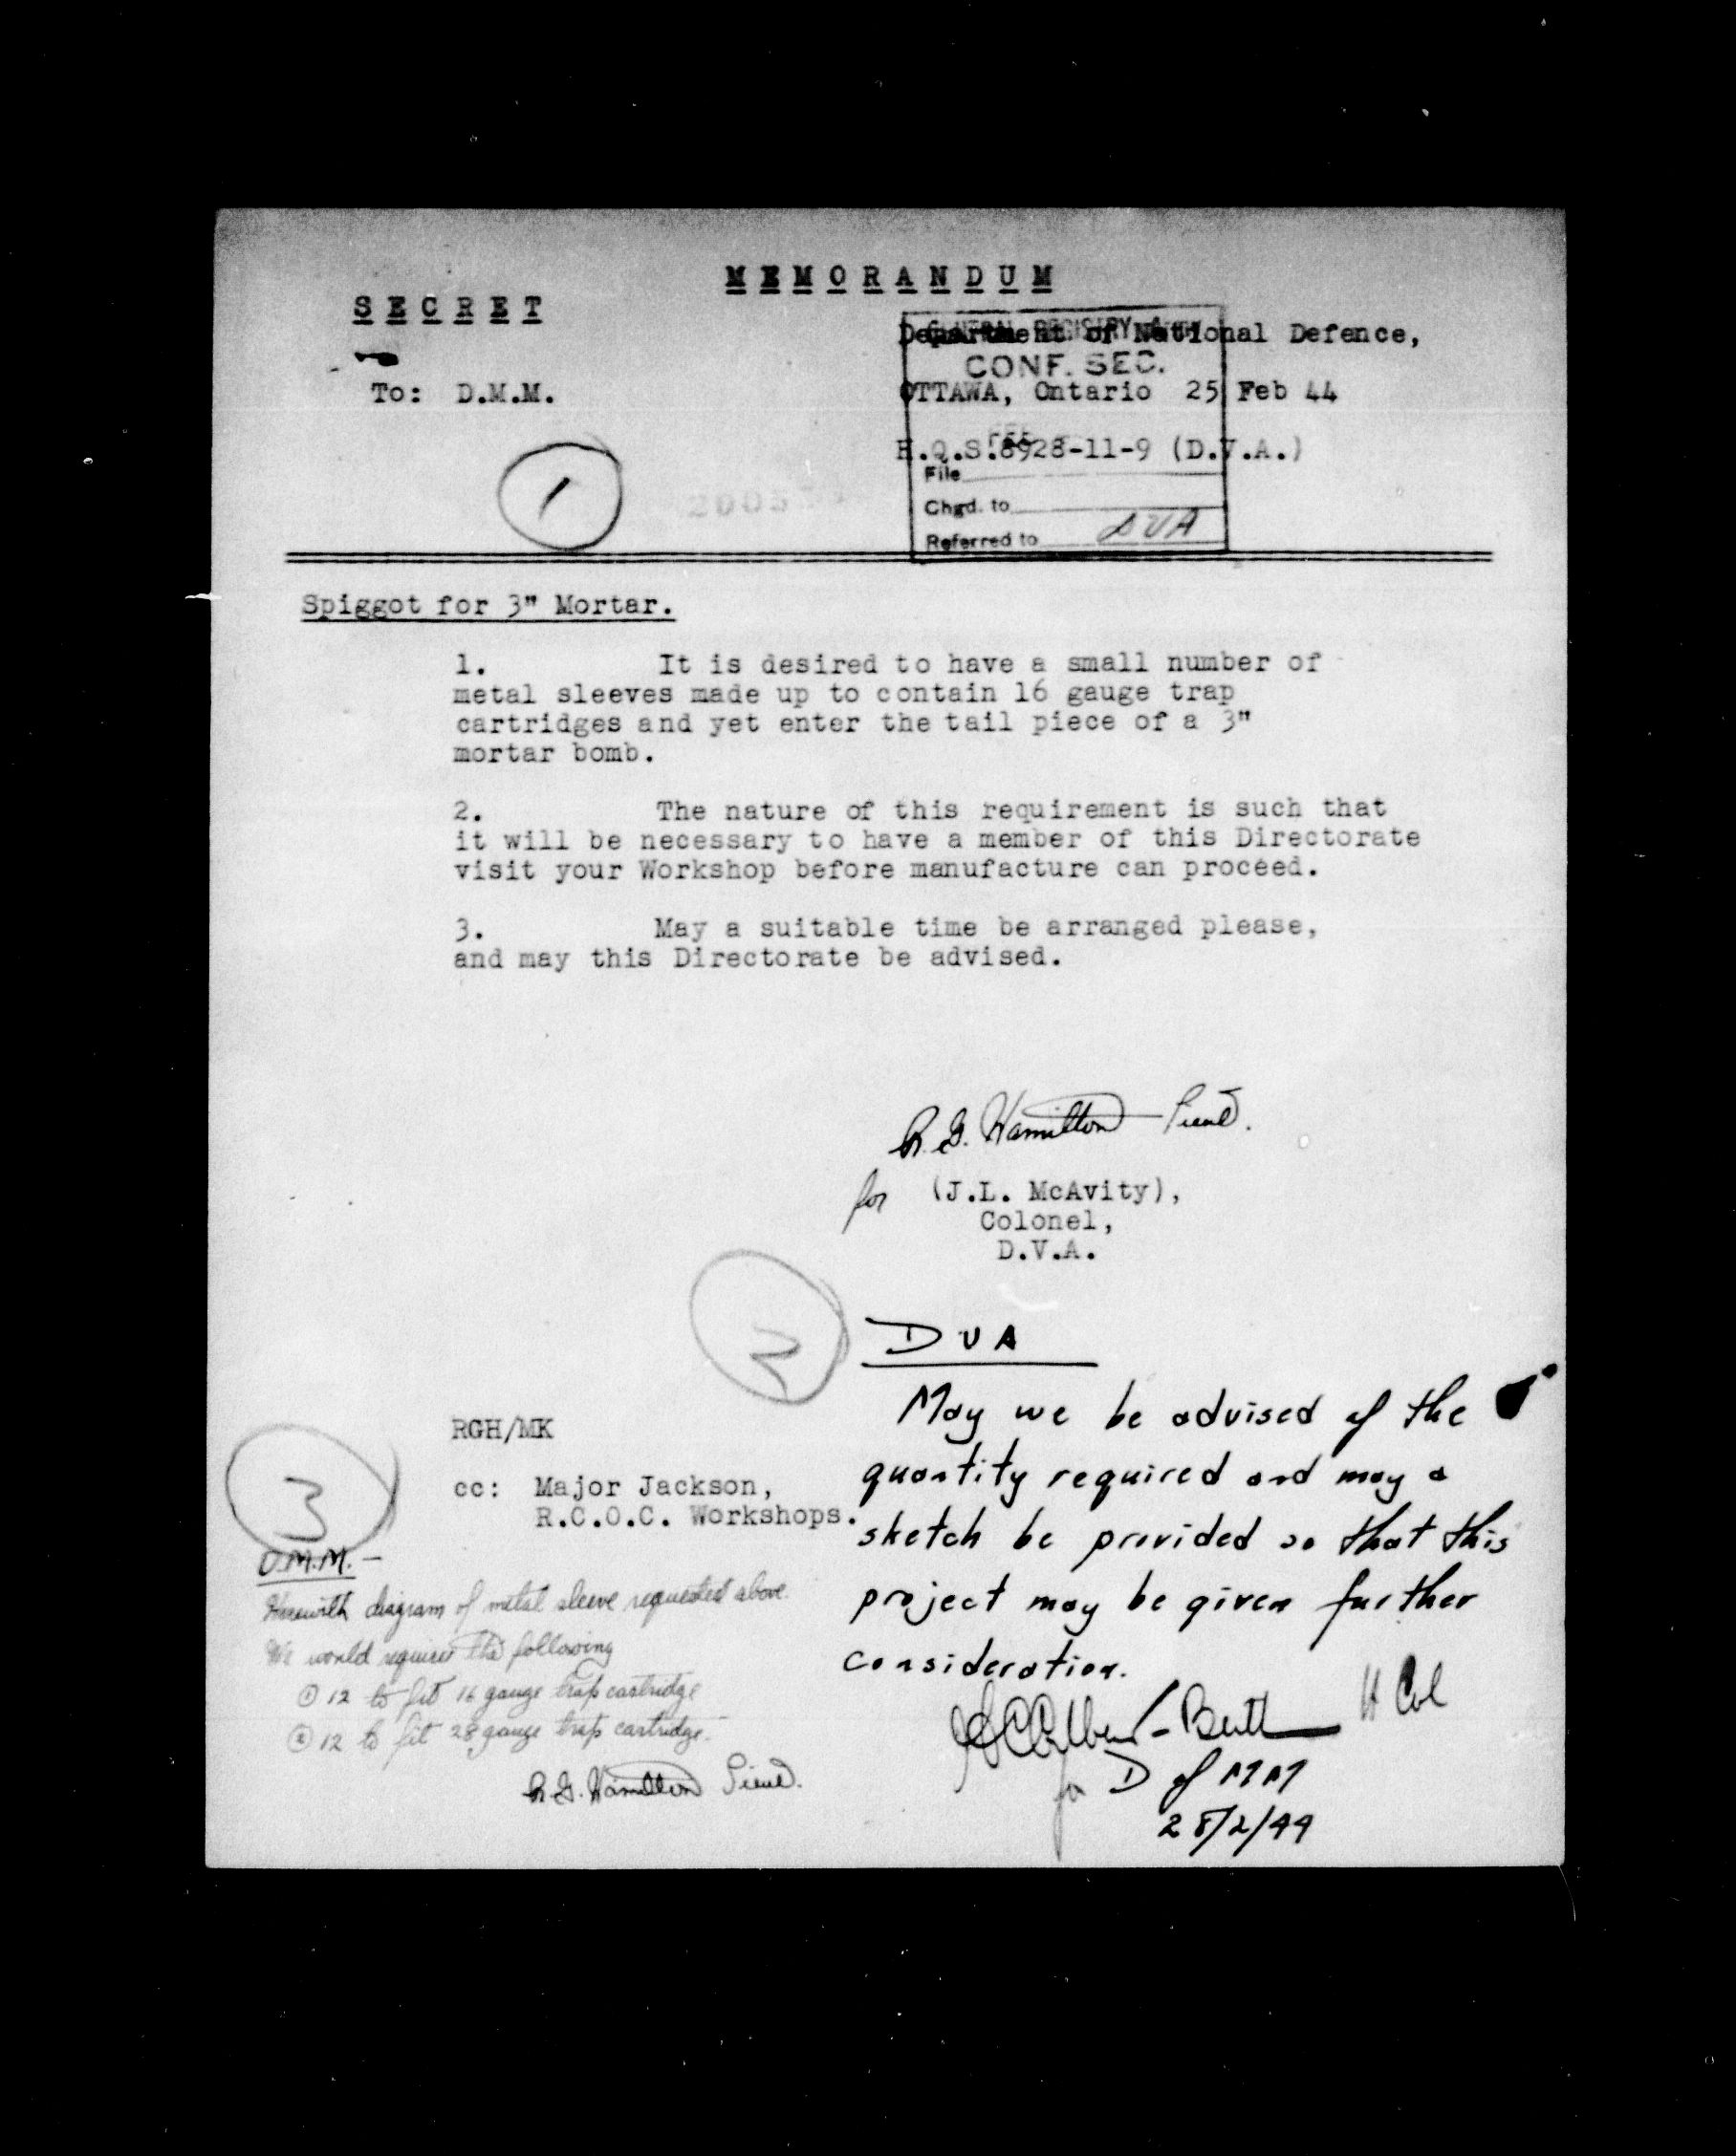 MEMORANDUM
SECRET
Department of National Defence,
GENERAL REGISTRY
CONF. SEC.
To: D.M.M.
OTTAWA, Ontario 25 Feb 44
FEB
H.Q.S.8928-11-9 (D.V.A.)
File
1
Chgd. to
Referred to DVA
Spiggot for 3" Mortar.
1. It is desired to have a small number of
metal sleeves made up to contain 16 gauge trap
cartridges and yet enter the tail piece of a 3"
mortar bomb.
2. The nature of this requirement is such that
it will be necessary to have a member of this Directorate
visit your Workshop before manufacture can proceed.
3. May a suitable time be arranged please,
and may this Directorate be advised.
R.G. Hamilton Lieut.
for (J.L. McAvity),
Colonel,
D.V.A.
2
DVA
May we be advised of the
quantity required and may a
sketch be provided so that this
project may be given further
consideration.
Lt Col
for D of MM
28/2/44
RGH/MK
cc: Major Jackson,
R.C.O.C. Workshops.
3
D.M.M. -
Herewith diagram of metal sleeve requested above.
We would require the following
① 12 to fit 16 gauge trap cartridge
② 12 to fit 28 gauge trap cartridge.
R.G. Hamilton Lieut.